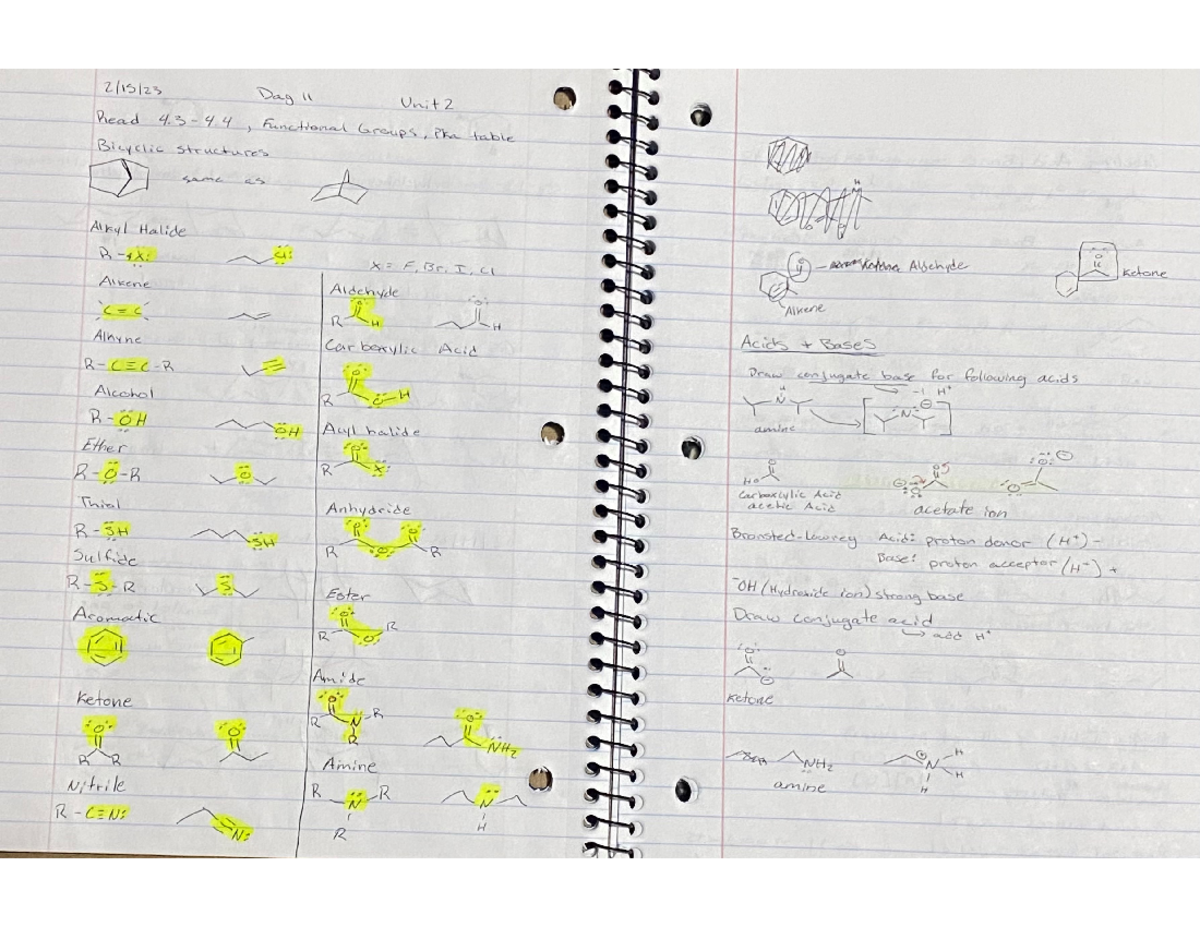 2/15/23 Day 11 Unit 2
Read 4.3-4.4, Functional Groups, Pka table
Bicyclic structures
same as
Alkyl Halide
R-X: Cl:
X = F, Br, I, Cl
Alkene
C=C
Alkyne
R-C≡C-R
Alcohol
R-OH OH
Ether
R-O-R O
Thiol
R-SH SH
Sulfide
R-S-R S
Aromatic
Ketone
O O
R R
Nitrile
R-C≡N: N:
Aldehyde
O O
R H H
Carboxylic Acid
O
R O-H
Acyl halide
O
R X:
Anhydride
O O
R O R
Ester
O
R O R
Amide
O O
R N-R NH2
R
Amine
R N R N
R H
H
O
Aldehyde
Alkene
O
Ketone
Acids + Bases
Draw conjugate base for following acids
-1 H+
H
N N ⊖
amine
O O :O: ⊖
HO ⊖:O O
Carboxylic Acid
acetic Acid acetate ion
Bronsted-Lowrey Acid: proton donor (H+) -
Base: proton acceptor (H+) +
-OH (Hydroxide ion) strong base
Draw conjugate acid
add H+
:O: O
⊖
Ketone
NH2 ⊕N H
H
H
amine